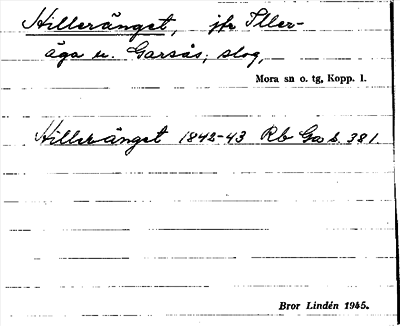 Hilleränget, jfr Iller-
äga u. Garsås; slog,
Mora sn o. tg, Kopp. l.
Hilleränget 1842-43 Rb Ga s. 381
Bror Lindén 1945.